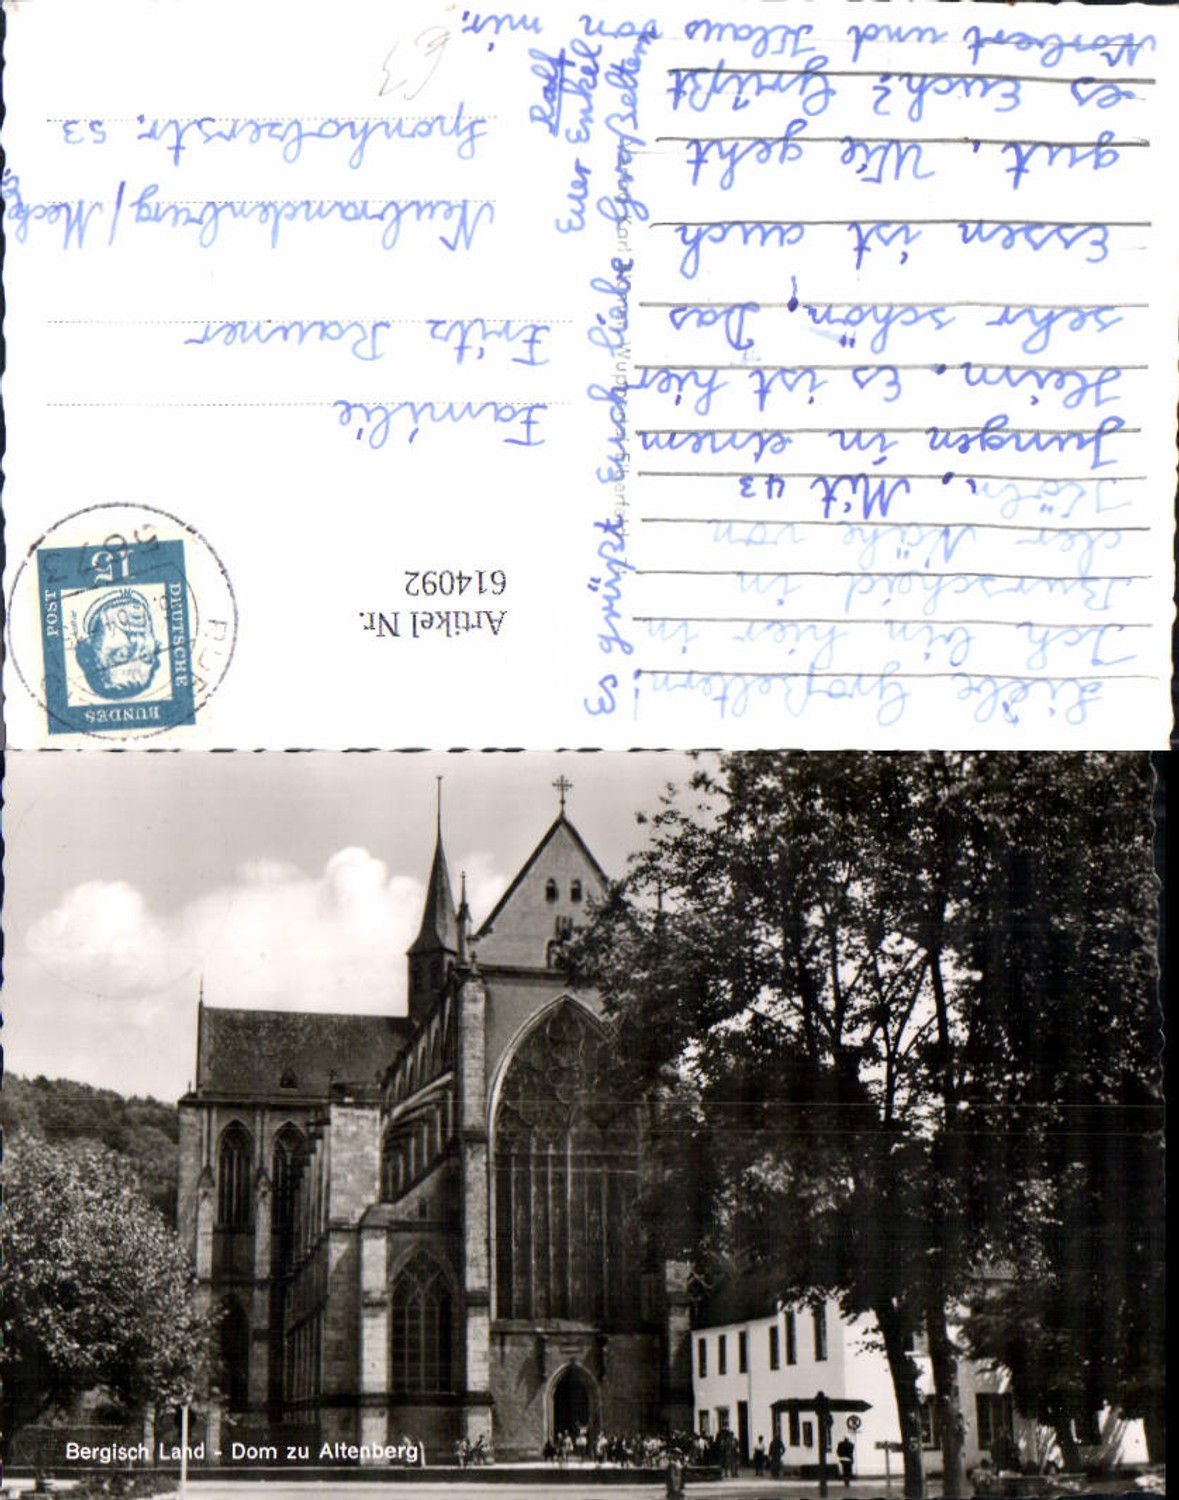 Liebe Großeltern!
Ich bin hier in
Burscheid in
der Nähe von
Köln. Mit 43
Jungen in einem
Heim. Es ist hier
sehr schön. Das
Essen ist auch
gut. Wie geht
es Euch? Grüßt
Norbert und Klaus von mir.
Es grüßt Euch liebe Großeltern
Euer Enkel
Ralf
Artikel Nr.
614092
BUNDES
DEUTSCHE
POST
15
Familie
Fritz Rauner
Neubrandenburg/Meck
Sponholzerstr. 53
Bergisch Land - Dom zu Altenberg